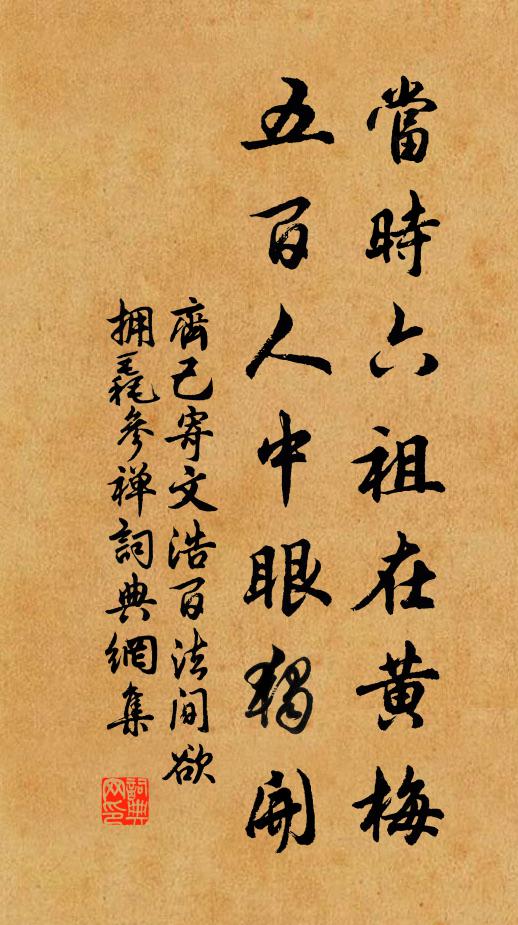 當時六祖在黃梅
五百人中眼獨開
齊己寄文浩百法间欲
拥毳參禅詞典網集
詞典网印